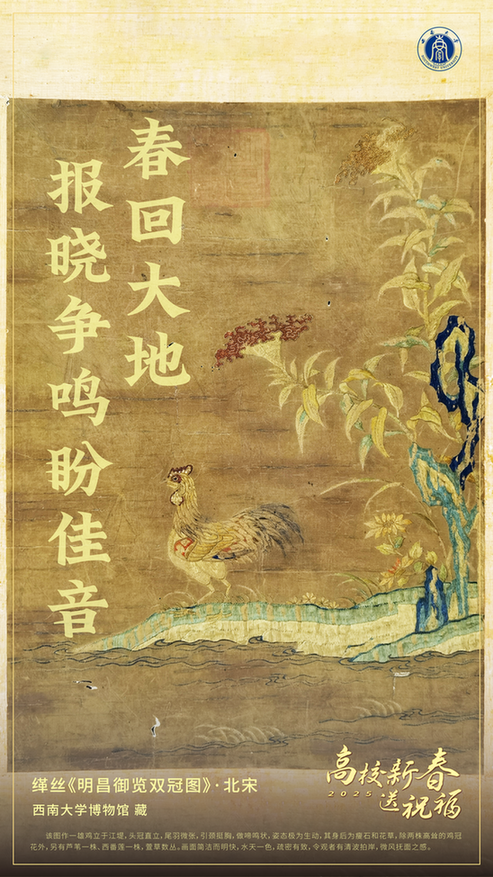 春回大地
报晓争鸣盼佳音
缂丝《明昌御览双冠图》·北宋
西南大学博物馆 藏
高校新春
2025 送祝福
该图作一雄鸡立于江堤，头冠直立，尾羽微张，引颈挺胸，做啼鸣状，姿态极为生动，其身后为靈石和花草，除两株高耸的鸡冠
花外，另有芦苇一株、西番莲一株，萱草数丛。画面简洁而明快，水天一色，疏密有致，令观者有清波拍岸，微风抚面之感。